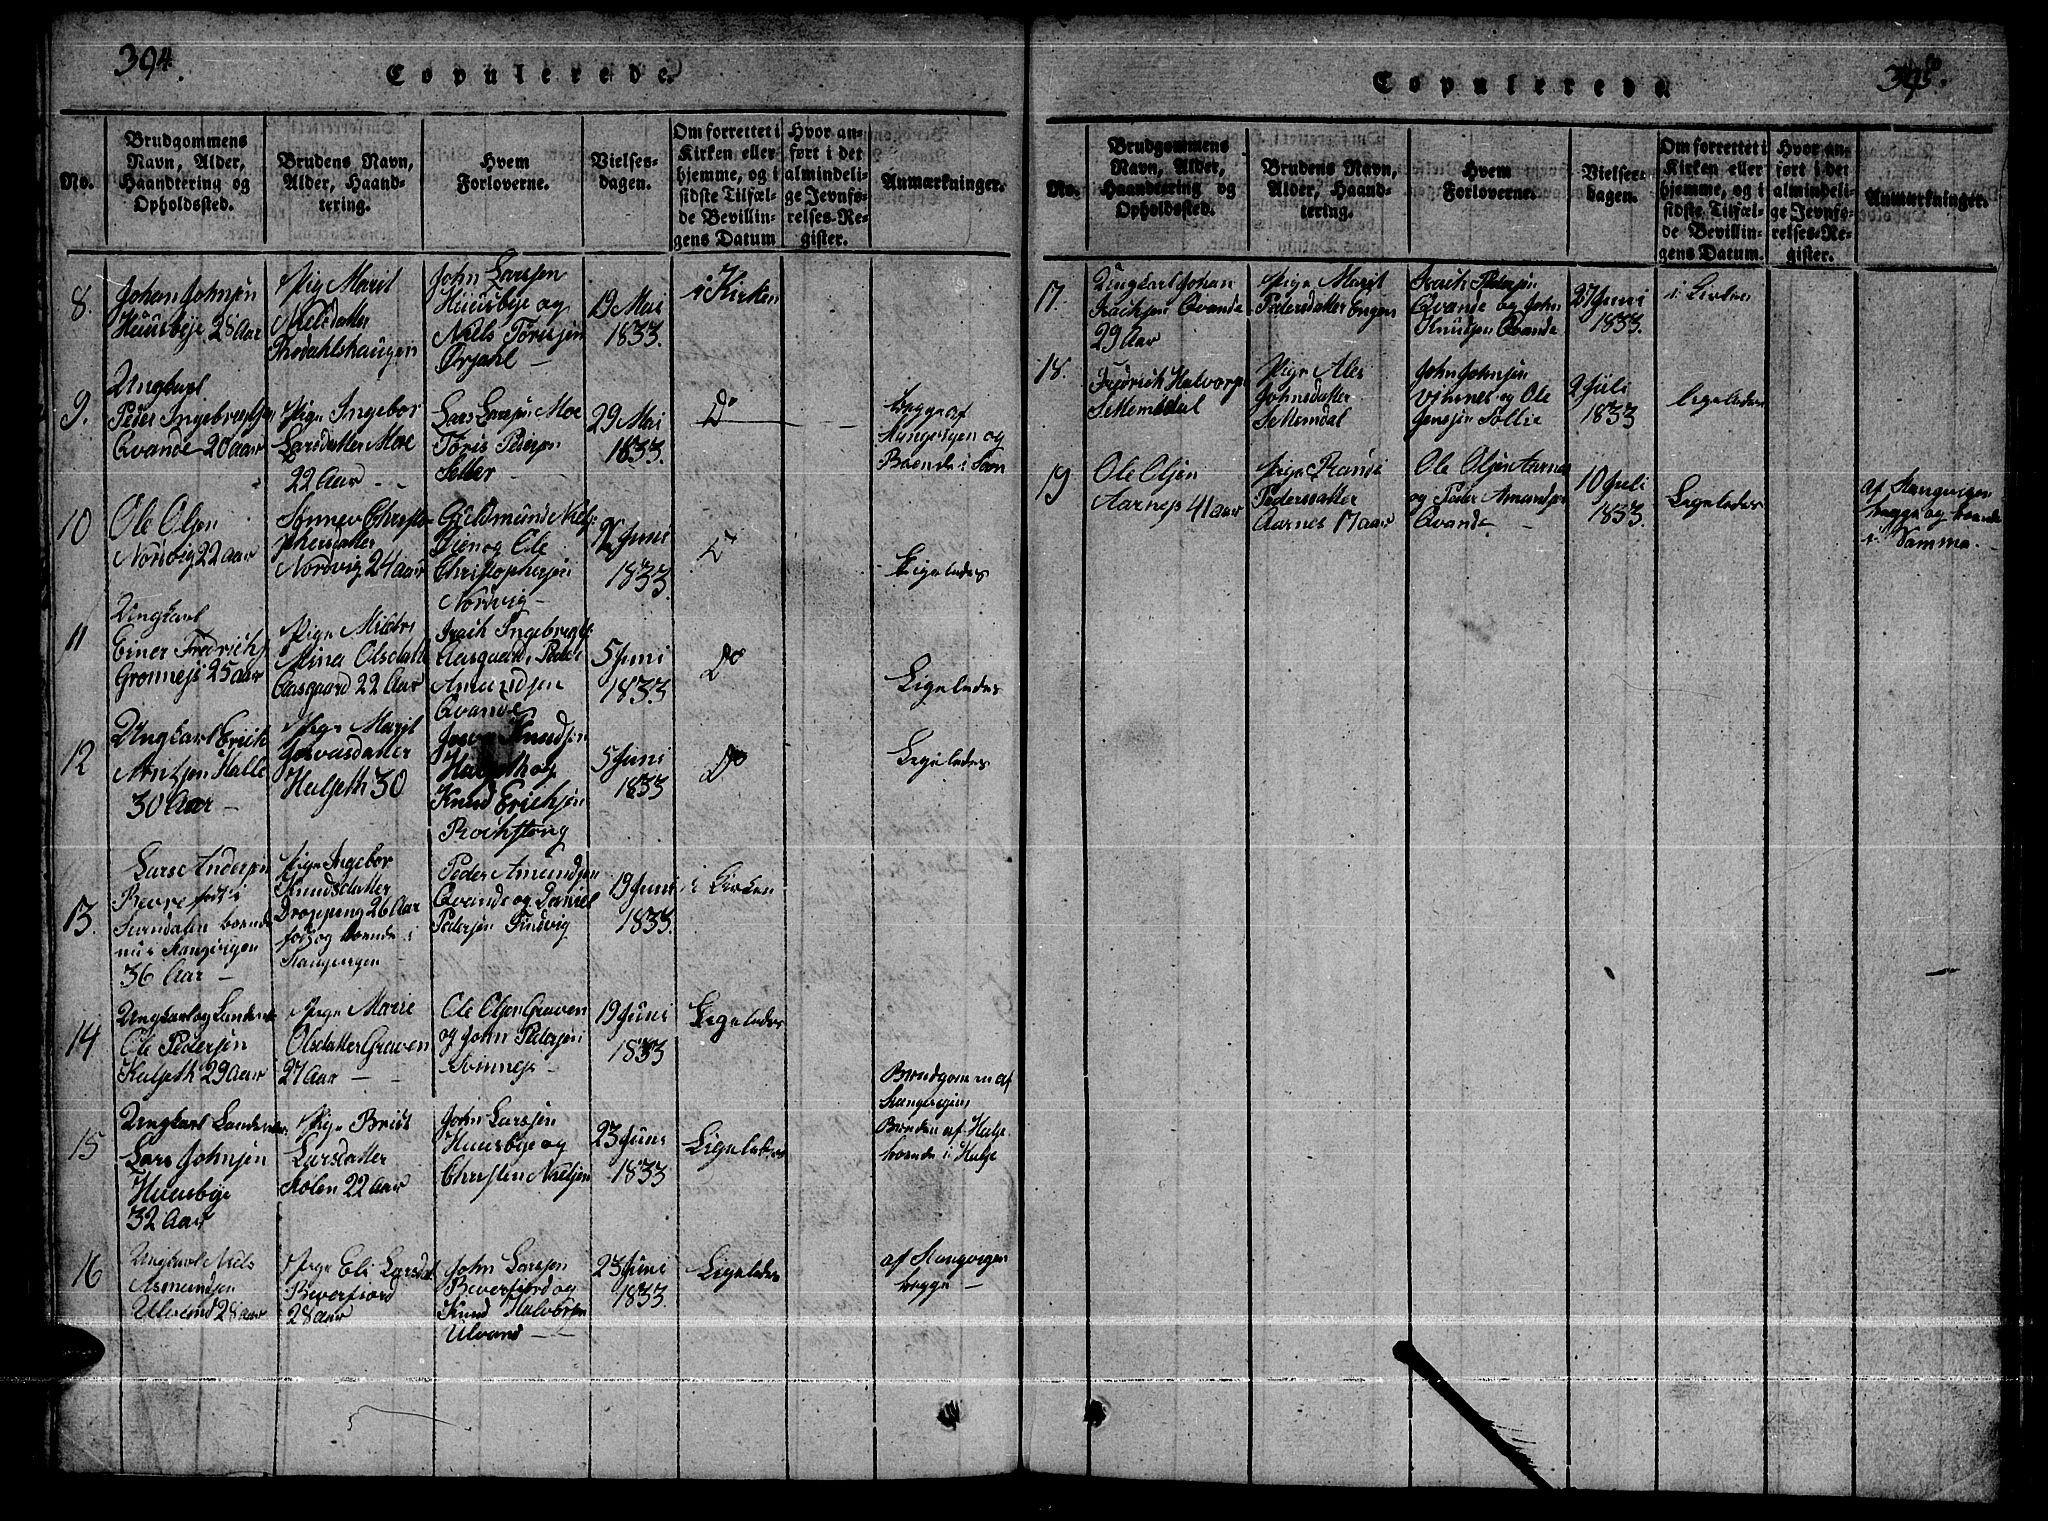 394.
Copulerede.
No.
Brudgommens
Navn, Alder,
Haandtering og
Opholdssted.
Brudens Navn,
Alder, Haand-
tering.
Hvem
Forloverne.
Vielses-
dagen.
Om forrettet i
Kirken eller
hjemme, og i
sidste Tilfæl-
de Bevillin-
gens Datum
Hvor an-
ført i det
almindeli-
ge Jevnfø-
relses-Re-
gister.
Anmærkninger.
8.
Johan Johnsen
Huusbye 28 Aar
Pige Marit
Nielsdatter
Thodahlshaugen
John Larssen
Huusbye og
Niels Torisjen
19 Mai
1833.
i Kirken
9.
Ungkarl
Peder Ingebregtsen
Qvande 20 aar
Pige Ingebor
Larsdatter Moe
22 Aar
Lars Larssen Moe
Toris Pedersen
29 Mai
1833.
Do
begge af
Stangvigen og
Boende i Soen
10
Ole Olsen
Nordvig 22 aar
Sønnev Christo-
phersdatter
Nordvig 24 aar
Guldmund Niels:
og Ole
Christophersen
Nordvig
Juni
1833.
Do
Ligeledes
11
Ungkarl
Einer Fredrichs
Grønnes 25 aar
Pige
Mina Olsdatt
Aasgaard 22 Aar
Isach Ingebregts:
Aasgaard, Peder
Amundsen
Qvande
5 Juni
1833
Do
Ligeledes
12
Ungkarl Erich
Arntsen Halle
30 Aar
Pige Marit
Halseth 30
Knudsen
Halseth og
Knud Erichsen
5 Juni
1833
Do
Ligeledes
13.
Lars Andersen
født i
Surendalen boende
nu i Stangvigen
36 Aar
Pige Ingebor
Knudsdatter
Dropping 26 Aar
fød og boende i
Stangvigen
Peder Amundsen
Qvande og Daniel
Pedersen Findvig
19 Juni
1833.
i Kirken
14
Ungkarl og
Ole Pedersen
Halseth 29 Aar
Pige Marie
Olsdatter Graven
27 Aar
Ole Olsen Graven
og John Pedersen
19 Juni
1833
Ligeledes
15
Ungkarl
Lars Johnsen
Huusbye
32 Aar
Pige Brist
Larsdatter
22 Aar
John Larssen
Huusbye og
Christen Nielsen
23 Juni
1833
Ligeledes
Brudgommen af
Stangvigens
Bruden af Halse
boende i Halse
16
Ungkarl Niels
Asmundsen
Ulvund 28 aar
Pige Eli Larsdat
Beverfiord
28 aar
John Larssen
Beverfiord og
Knud Halvorsen
Ulvund
23 Juni
1833.
Ligeledes
af Stangvigen
begge
395.
Copulerede
No.
Brudgommens
Navn, Alder,
Haandtering og
Opholdssted.
Brudens Navn,
Alder, Haand-
tering.
Hvem
Forloverne.
Vielses-
dagen.
Om forrettet i
Kirken eller
hjemme, og i
sidste Tilfæl-
de Bevillin-
gens Datum.
Hvor an-
ført i det
almindeli-
ge Jevnfø-
relses-Re-
gister.
Anmærkninger.
17.
Ungkarl Johan
Isachsen Qvande
29 Aar
Pige Marit
Pedersdatter Engen
Isach Pedersen
Qvande og John
Knudsen Qvande
27 Juni
1833.
i Kirken
18.
Fredrich Halvors
Settemsdal
Pige Ales
Johnsdatter
Settemdal
John Johnsen
og Ole
Jensen Sollie
2 Juli
1833
ligeledes
19
Ole Olsen
Aarnes 41 aar
Pige Randi
Pedersdatter
Aarnes 17 aar
Ole Olsen Aarnes
og Peder Amundsen
Qvande
10 Juli
1833.
Ligeledes
af Stangvigen
begge og boende
i Samme.